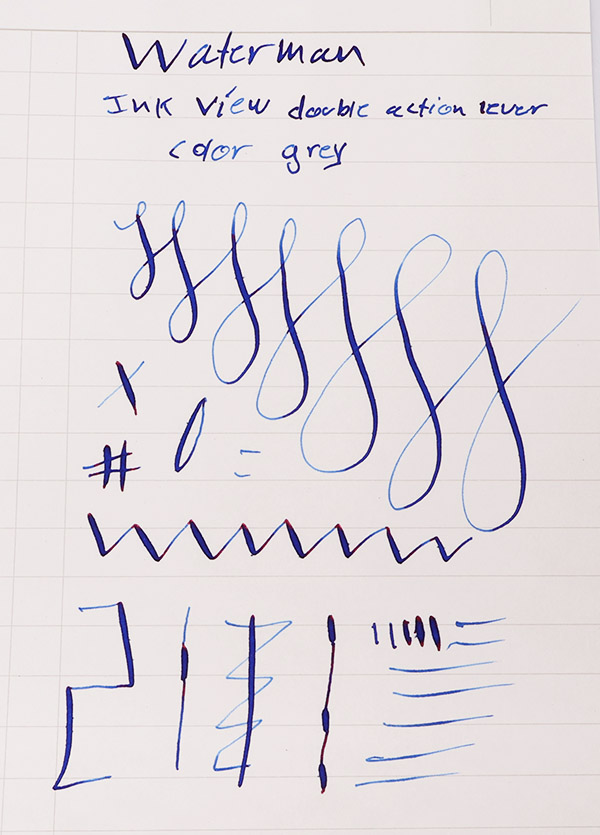 Waterman
Ink View double action lever
color grey
X
# 0 =